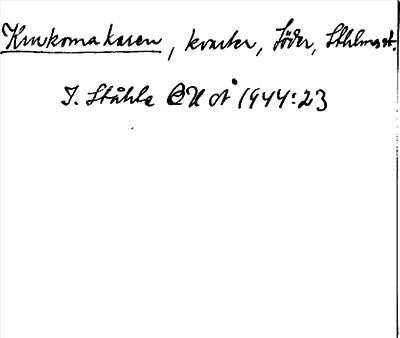 Krukomakaren, kvarter, Söder, Sthlms st.
I. Ståhle EU å 1944:23